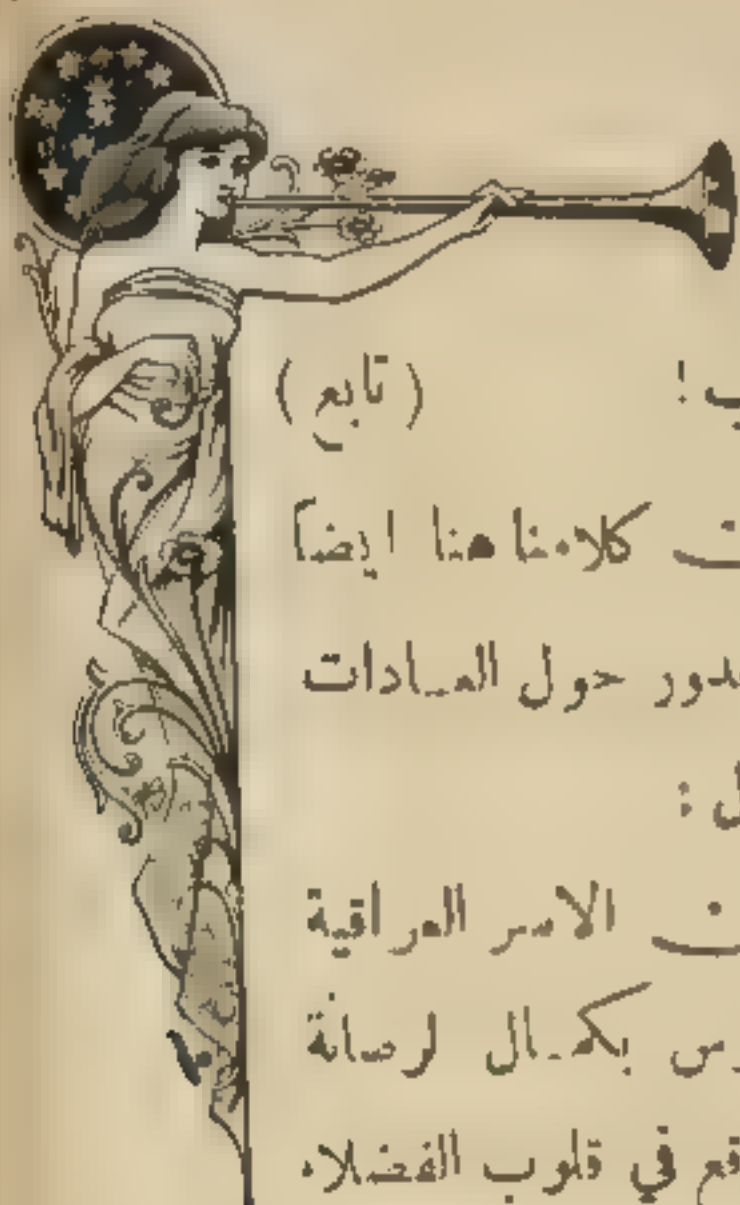 ! (تابع)
كلامنا هنا ايضا
حول العادات
:
الاسر العراقية
بكمال لرصانة
في قلوب الفضلاء